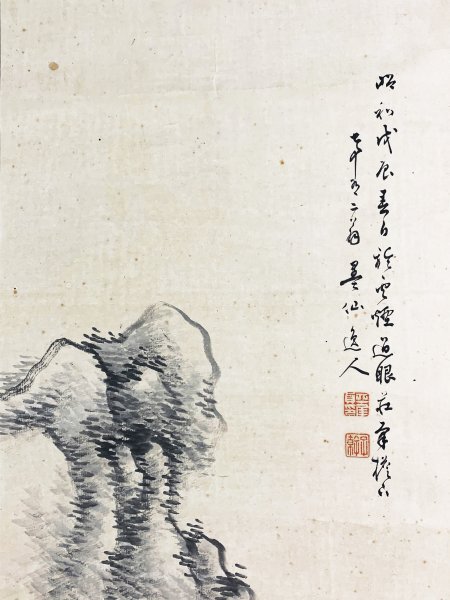 昭和戊辰春日於雲煙過眼莊
七十有二翁墨仙逸人